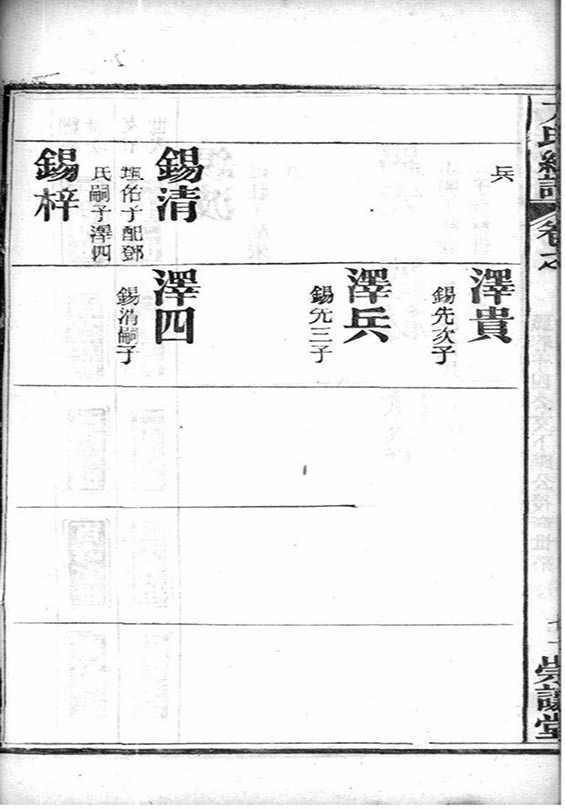 氏總譜
卷之
兵
錫清
佑子配鄧
氏嗣子澤四
錫梓
澤貴
錫先次子
澤兵
錫先三子
澤四
錫清嗣子